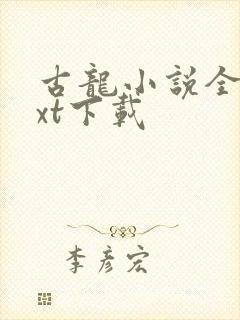 古龍小説全
xt下載
李彦宏